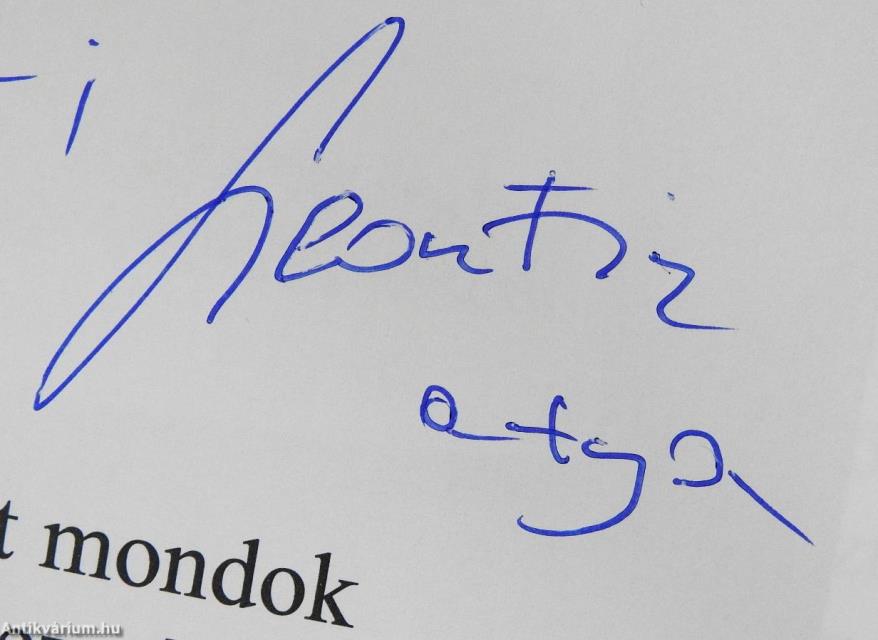 -i
Leontin
atya
t mondok
Antikvárium.hu